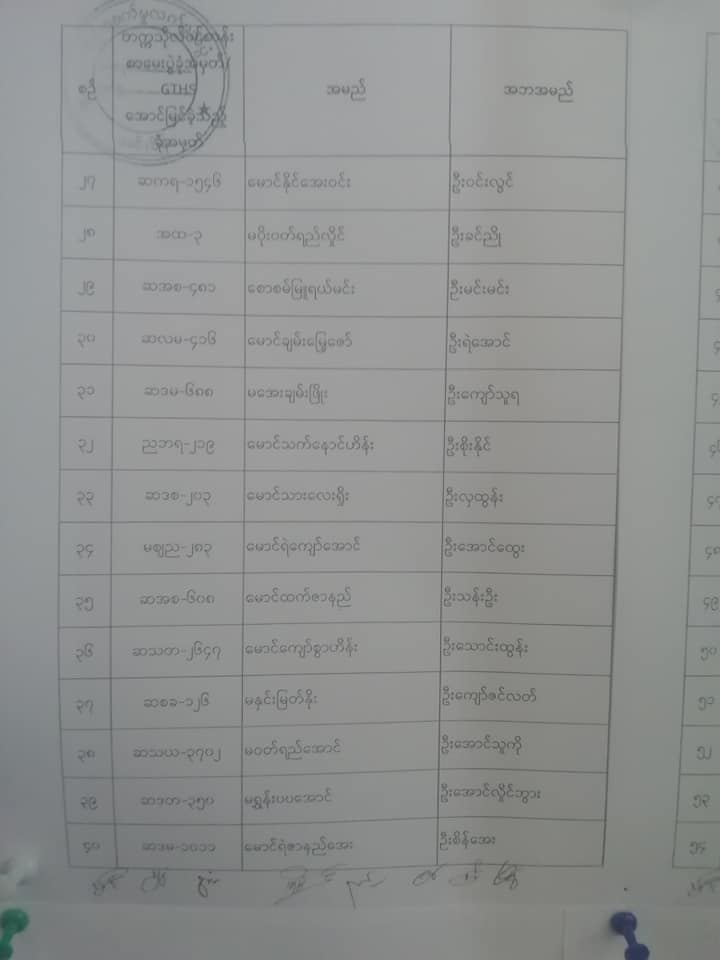 စဉ်
တက္ကသိုလ်ဝင်တန်း
စာမေးပွဲခုံအမှတ်/
GTHS
အောင်မြင်ခဲ့သည့်
ခုံအမှတ်
အမည်
အဘအမည်
၂၇ ဆကရ-၁၅၄၆ မောင်နိုင်အေးဝင်း ဦးဝင်းလွင်
၂၈ အထ-၃ မပိုးဝတ်ရည်လှိုင် ဦးခင်ညို
၂၉ ဆအစ-၄၈၁ စောစမ်မြူရယ်မင်း ဦးမင်းမင်း
၃၀ ဆလမ-၄၁၆ မောင်ချမ်းမြေ့ဇော် ဦးရဲအောင်
၃၁ ဆဒမ-၆၈၈ မအေးချမ်းဖြိုး ဦးကျော်သူရ
၃၂ ညဘရ-၂၁၉ မောင်သက်နောင်ဟိန်း ဦးစိုးနိုင်
၃၃ ဆဒစ-၂၀၃ မောင်သားလေးရှိုး ဦးလှထွန်း
၃၄ မဈည-၂၈၃ မောင်ရဲကျော်အောင် ဦးအောင်ထွေး
၃၅ ဆအစ-၆၀၈ မောင်ထက်ဇာနည် ဦးသန်းဦး
၃၆ ဆသတ-၂၆၄၇ မောင်ကျော်စွာဟိန်း ဦးသောင်းထွန်း
၃၇ ဆစခ-၁၂၆ မနှင်းမြတ်နိုး ဦးကျော်ဇင်လတ်
၃၈ ဆသယ-၃၇၀၂ မဝတ်ရည်အောင် ဦးအောင်သူကို
၃၉ ဆဒတ-၃၅၀ မရွှန်းပပအောင် ဦးအောင်လှိုင်ဘွား
၄၀ ဆဒမ-၁၀၁၁ မောင်ရဲဇာနည်အေး ဦးစိန်အေး
၄၈
၄၉
၅၀
၅၁
၅၂
၅၃
၅၄